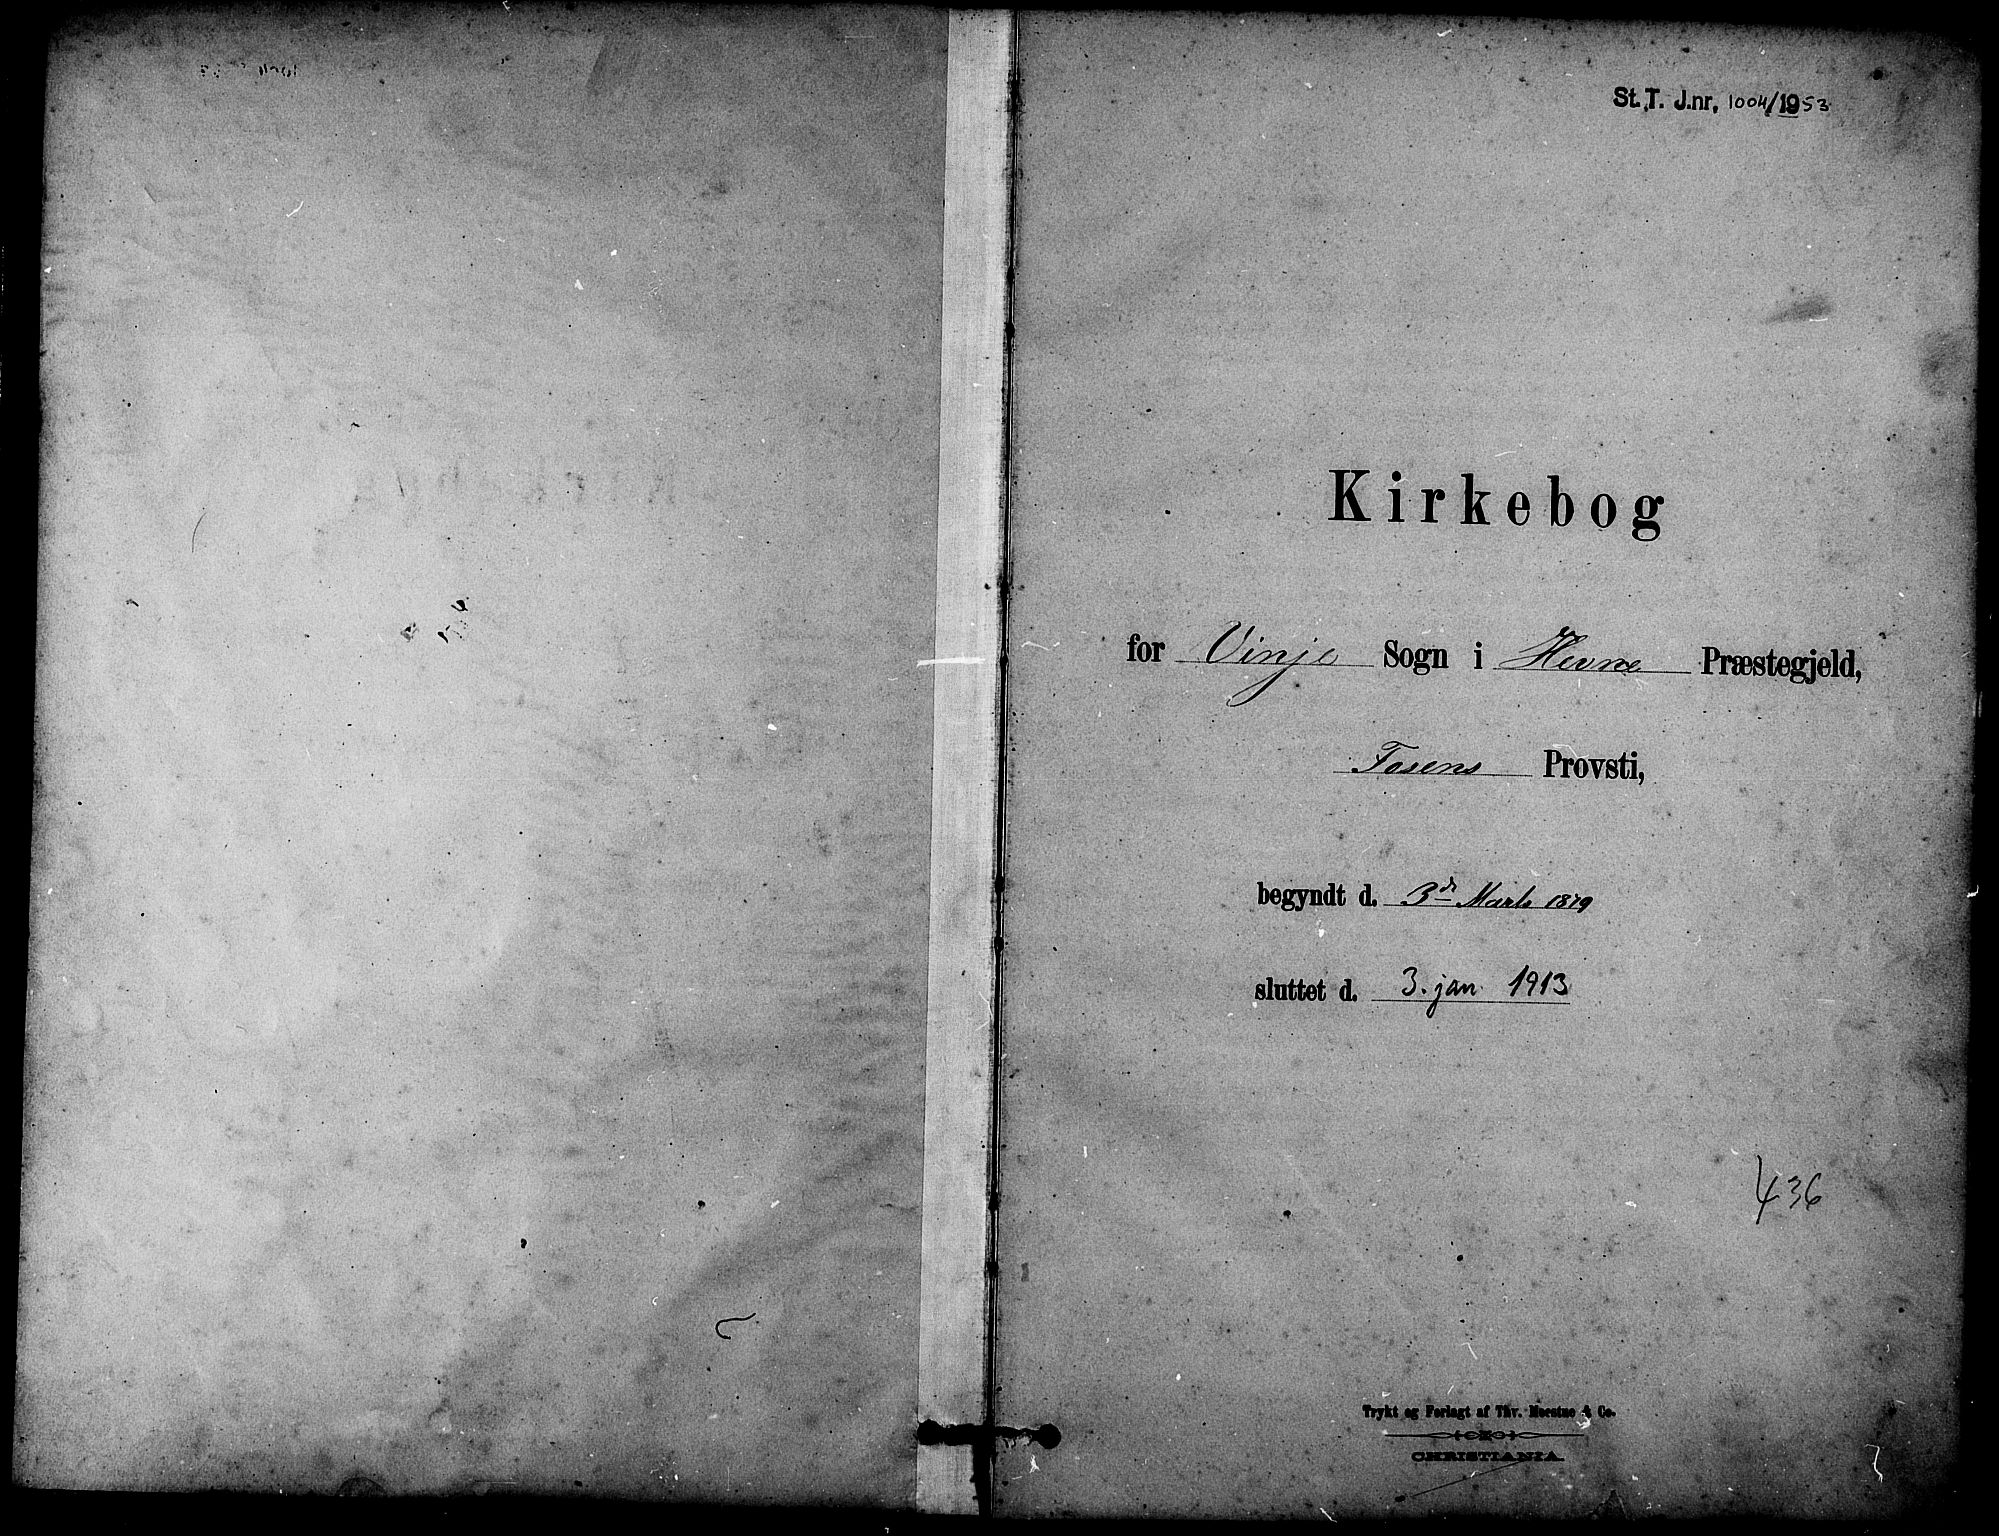 St. T. J.nr. 1004/1953
Kirkebog
for Vinje Sogn i Hevne Præstegjeld,
Fosens Provsti,
begyndt d. 3de Marts 1879
sluttet d. 3. jan. 1913
436
Trykt og Forlagt af Thv. & Co.
CHRISTIANIA.